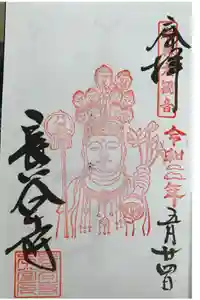 奉拝
観音
令和三年
五月廿四日
長谷寺